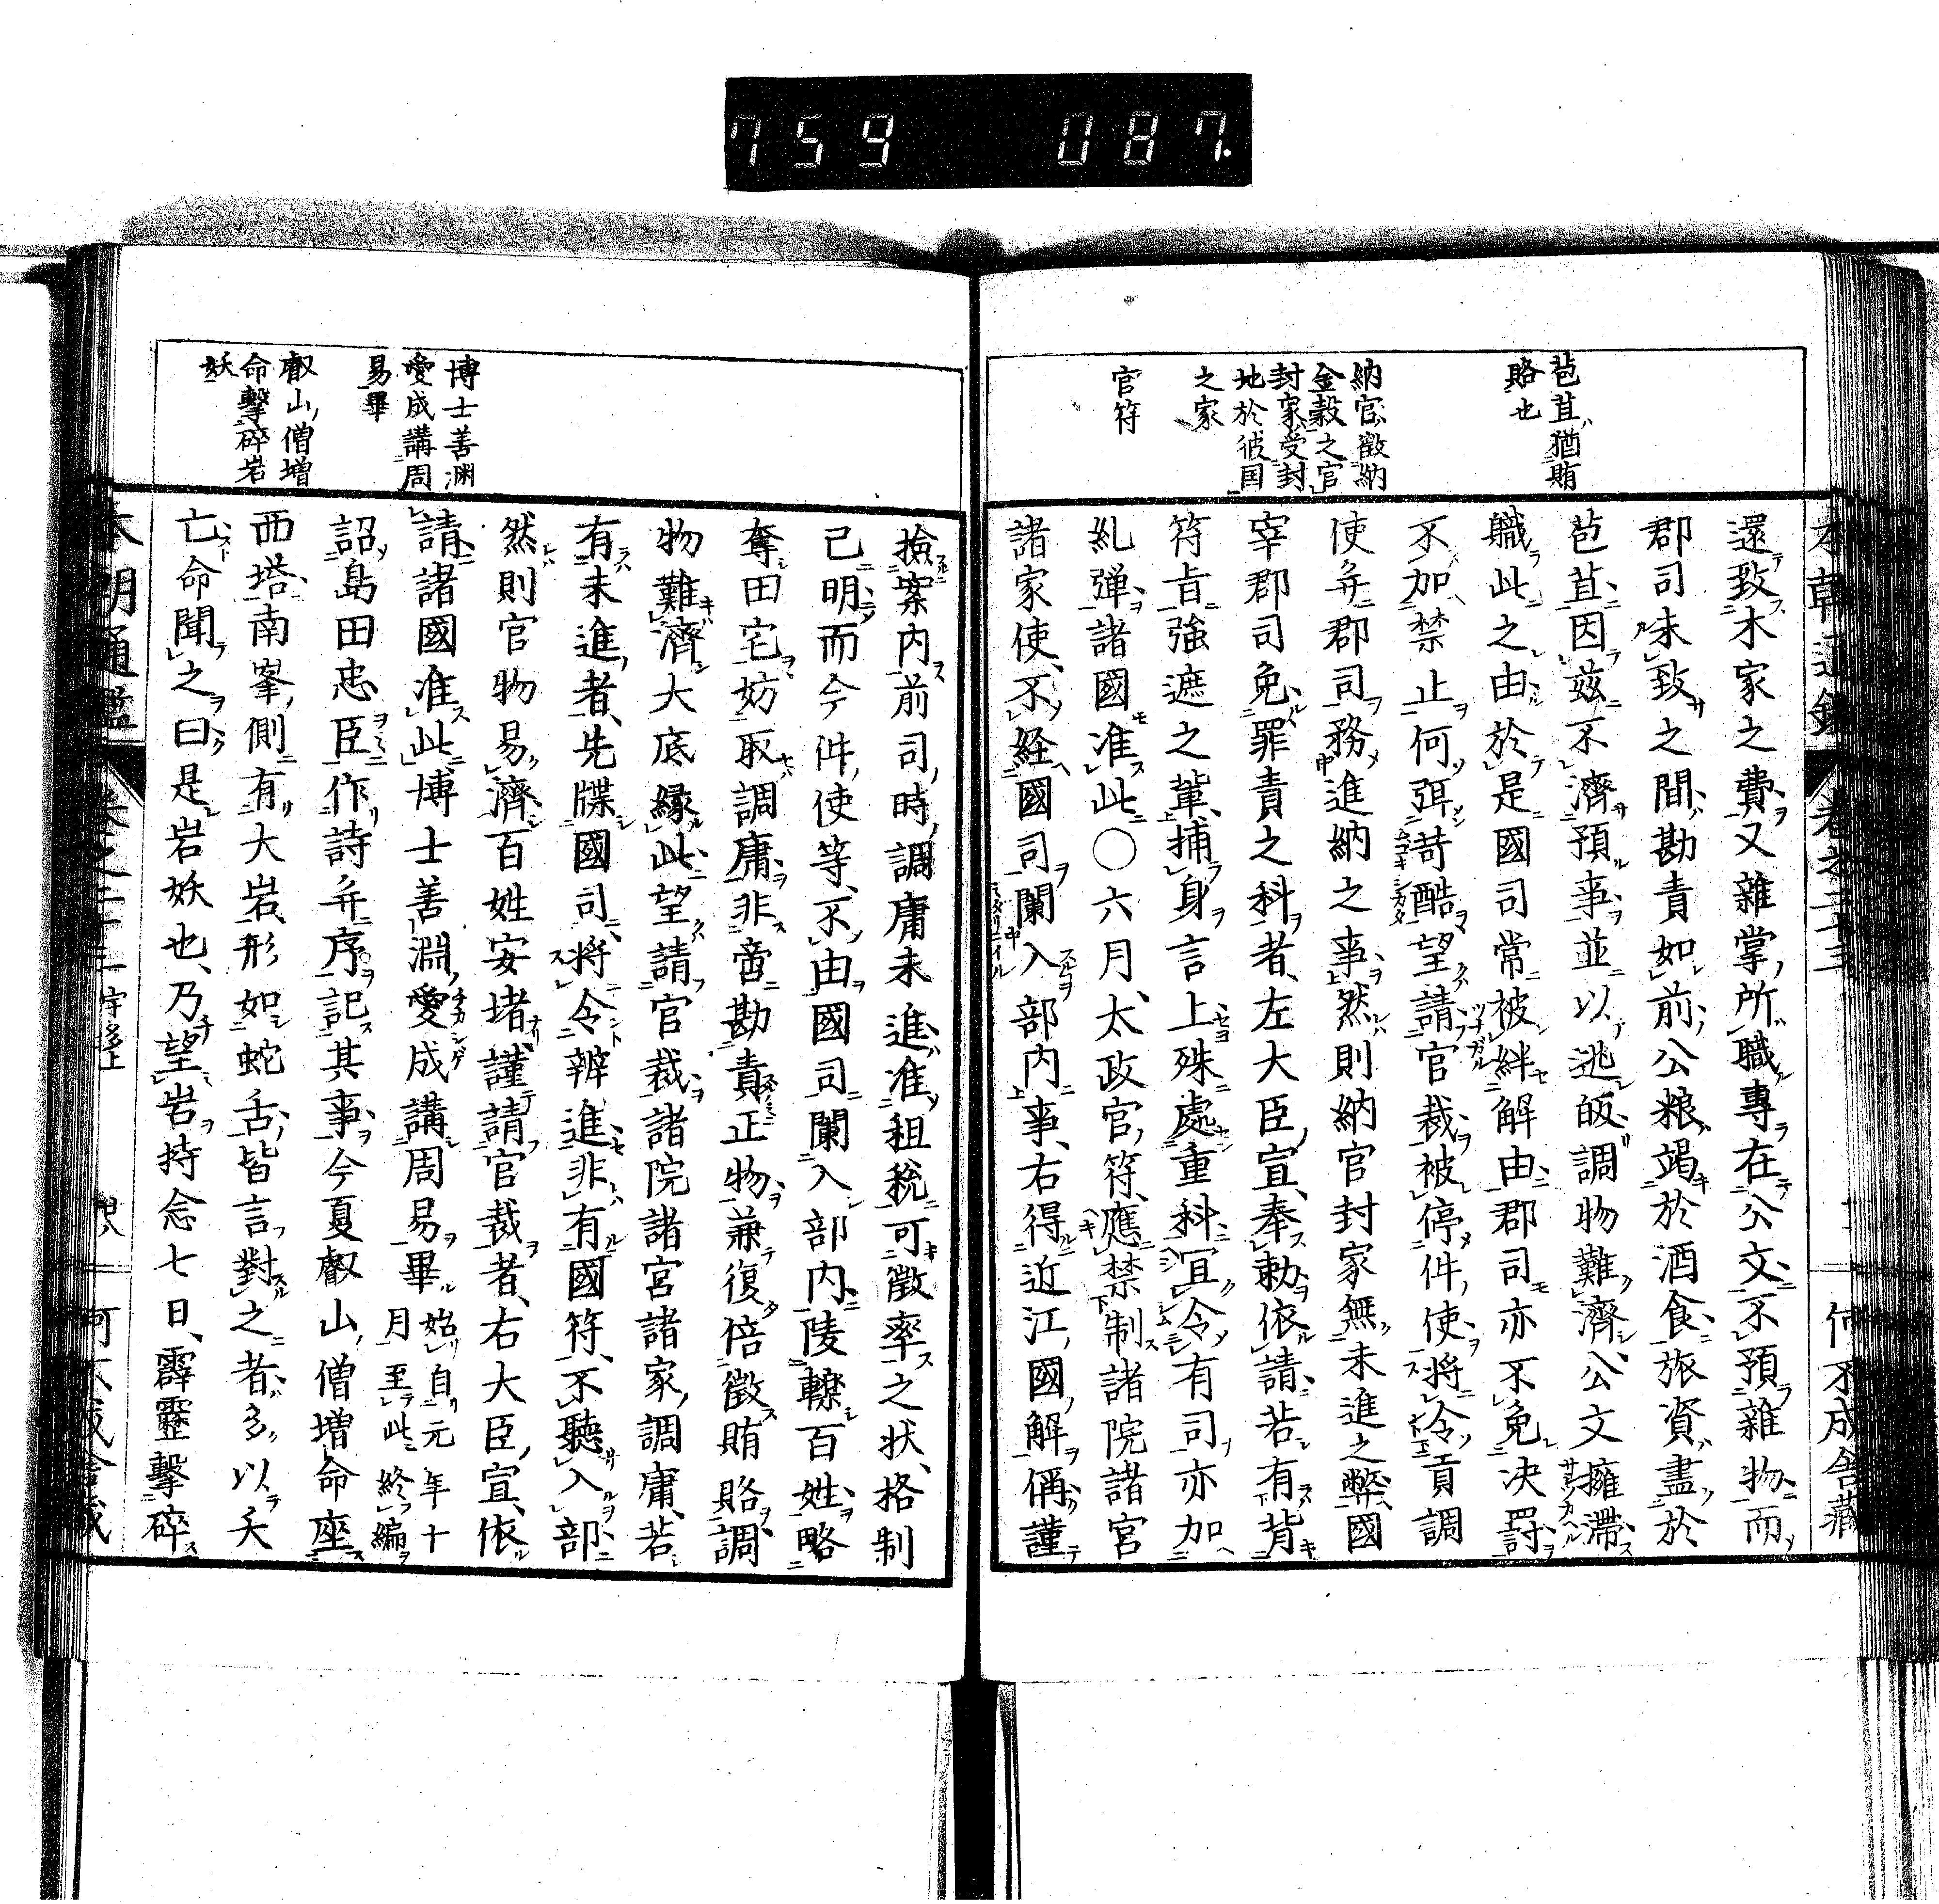 759 087.
苞苴猶賄
賂也
納官徵納
金穀之官
封家受封
地於彼国
之家
官符
還致木家之費又雜掌所職專在公文不預雜物而
郡司未致之間勘責如前公粮竭於酒食旅資盡於
苞苴因茲不濟預事並以逃皈調物難濟公文擁滯
職此之由於是國司常被絆解由郡司亦不免决罸
不加禁止何弭苛酷望請官裁被停件使將令貢調
使幷郡司務進納之事然則納官封家無未進之弊國
宰郡司免罪責之科者左大臣宣奉勅依請若有背
符旨強遮之輩捕身言上殊處重科冝令有司亦加
糺弾諸國准此〇六月太政官符應禁制諸院諸宮
諸家使不経國司闌入部内事右得近江國解偁謹
撿案内前司時調庸未進准租稅可徵率之状格制
已明而今件使等不由國司闌入部内陵轢百姓略
奪田宅妨取調庸非啻勘責正物兼復倍徵賄賂調
物難濟大底縁此望請官裁諸院諸宮諸家調庸若
有未進者先牒國司將令辨進非有國符不聽入部
然則官物易濟百姓安堵謹請官裁者右大臣宣依
請諸國准此博士善淵愛成講周易畢始自元年十
月至此終編
詔島田忠臣作詩幷序記其事今夏叡山僧增命座
西塔南峯側有大岩形如蛇舌皆言對之者多以夭
亡命聞之曰是岩妖也乃望岩持念七日霹靂擊碎
博士善渊
愛成講周
易畢
叡山僧増
命擊碎岩
妖